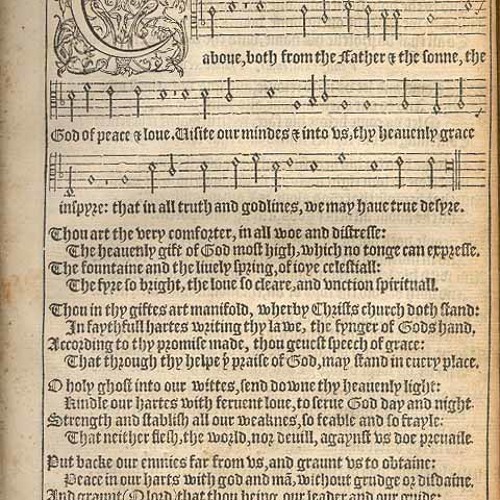 C
aboue, both from the Father & the sonne, the
God of peace & loue. Uisite our mindes & into vs, thy heauenly grace
inspyre: that in all truth and godlines, we may haue true desyre.
Thou art the very comforter, in all woe and distresse:
The heauenly gift of God most high, which no tonge can expresse.
The fountaine and the liuely spring, of ioye celestiall:
The fyre so bright, the loue so cleare, and vnction spirituall.
Thou in thy giftes art manifold, wherby Christs church doth stand:
In faythfull hartes writing thy lawe, the fynger of Gods hand,
According to thy promise made, thou geuest speech of grace:
That through thy helpe yͤ praise of God, may stand in euery place.
O holy ghost into our wittes, send downe thy heauenly light:
Kindle our hartes with feruent loue, to serue God day and night.
Strength and stablish all our weaknes, so feable and so frayle:
That neither flesh, the world, nor deuill, agaynst vs doe preuaile.
Put backe our ennnies far from vs, and graunt vs to obtaine:
Peace in our harts with god and mā, without grudge or disdaine.
And graunt (O lord) that thou being, our leader and our guide: